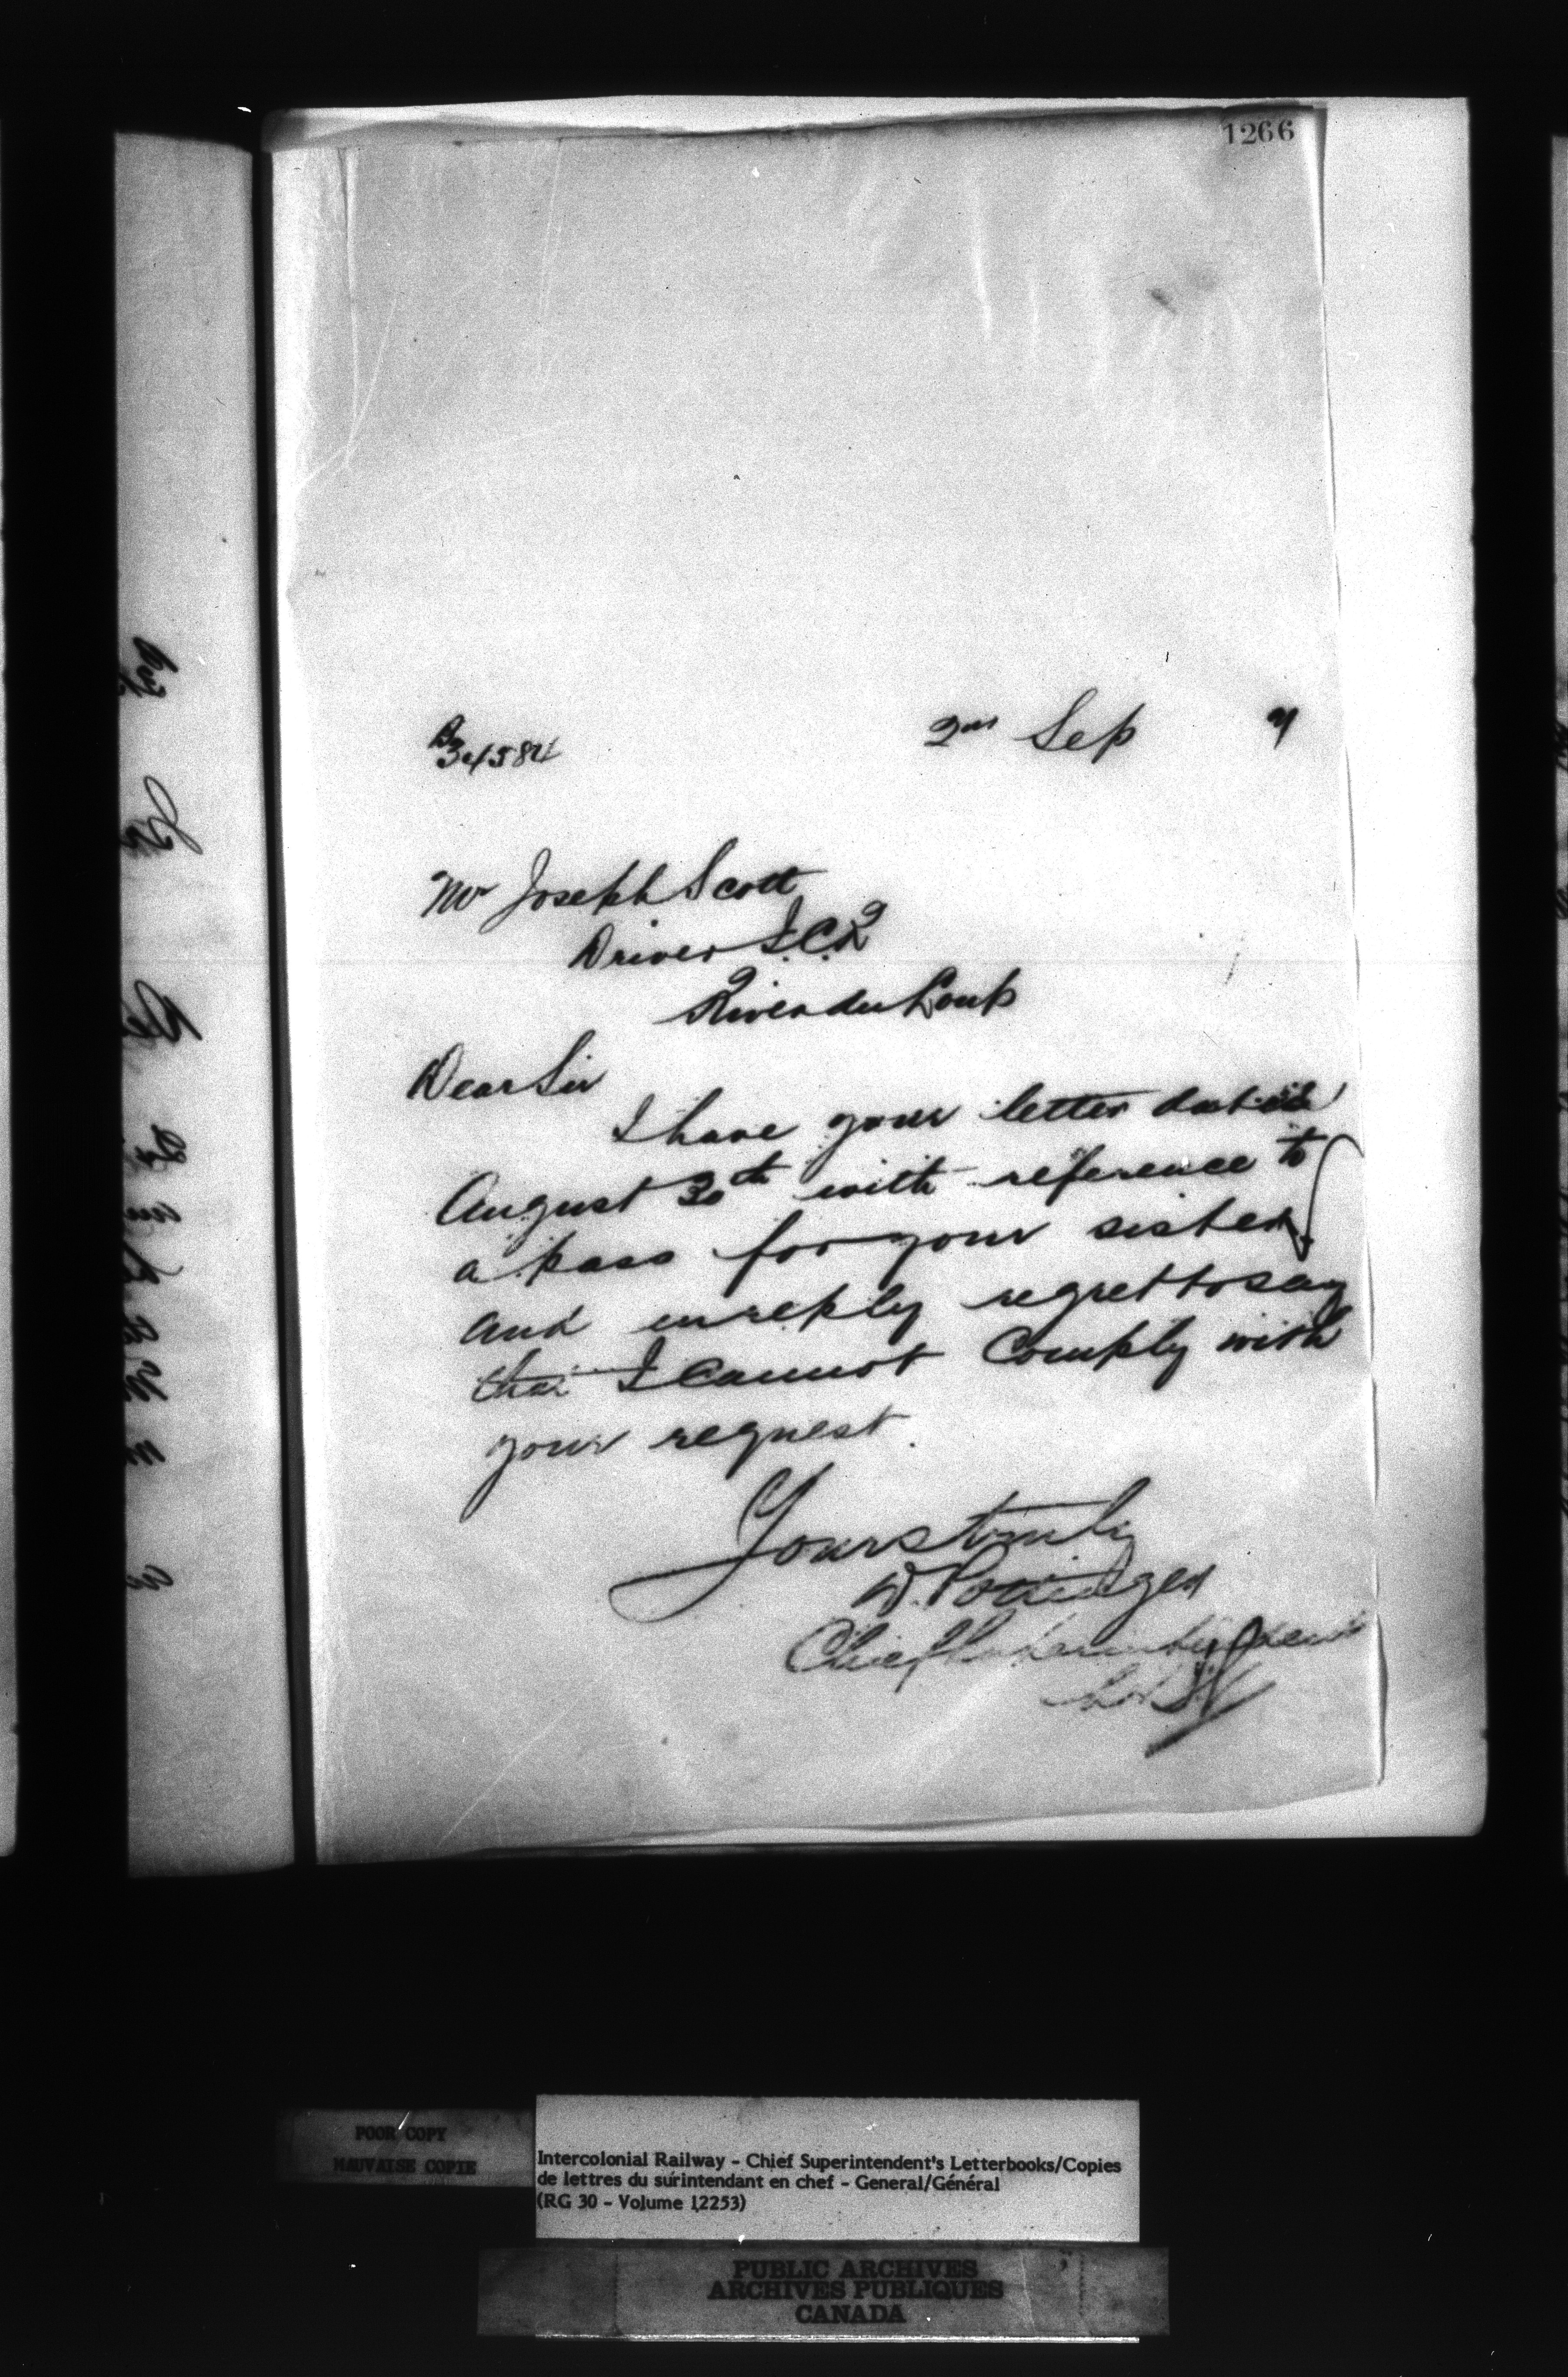 1266
B
34584
2nd Sep 9
Mr Joseph Scott
Driver I.C.R
River du Loup
Dear Sir
I have your letter dated
August 30th with reference to
a pass for your sister,
and in reply regret to say
that I cannot comply with
your request.
Yours truly
D. Pottinger
Chief Superintendent
POOR COPY
MAUVAISE COPIE
Intercolonial Railway - Chief Superintendent's Letterbooks/Copies
de lettres du surintendant en chef - General/Général
(RG 30 - Volume 12253)
PUBLIC ARCHIVES
ARCHIVES PUBLIQUES
CANADA